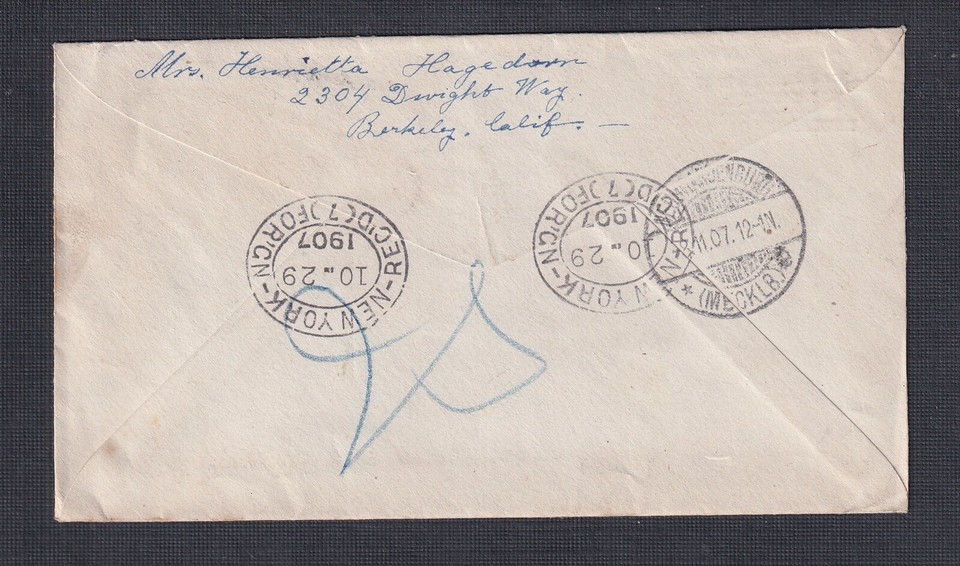 Mrs. Henrietta Hagedorn
2304 Dwight Way.
Berkeley, Calif. —
NEW YORK-N REC'D(7)FOR'GN
10-29
1907
NEW YORK-N REC'D(7)FOR'GN
10-29
1907
11.07.12-1N.
* (MECKLB.)